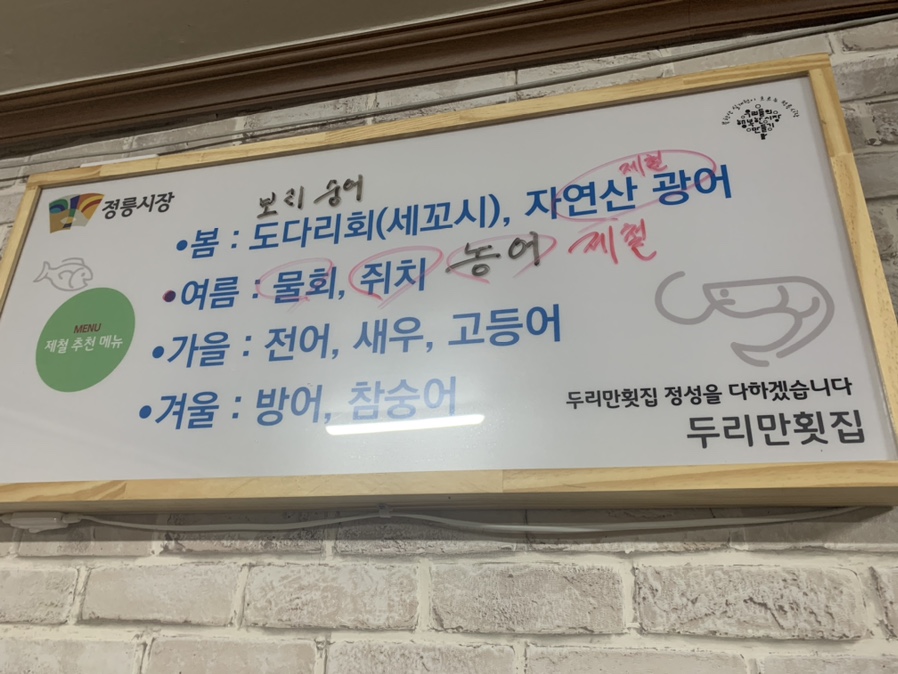 정릉시장
보리 숭어
제철
•봄 : 도다리회(세꼬시), 자연산 광어
•여름 : 물회, 쥐치 농어 제철
•가을 : 전어, 새우, 고등어
•겨울 : 방어, 참숭어
MENU
제철 추천 메뉴
두리만횟집 정성을 다하겠습니다
두리만횟집